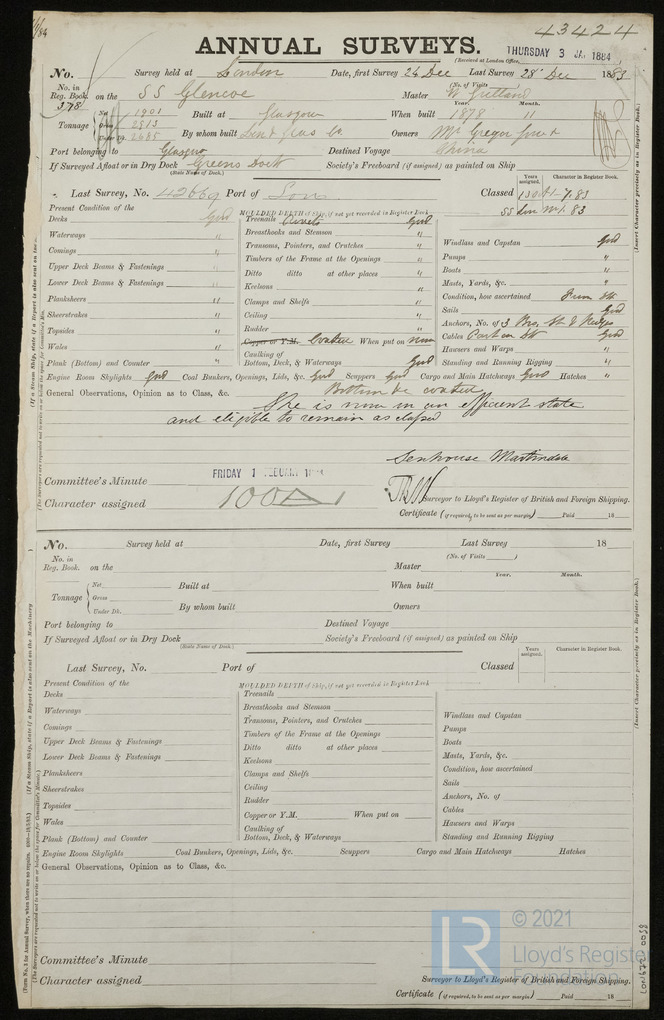 43424
ANNUAL SURVEYS.
THURSDAY 3 JAN 1884
(Received at London Office,
No. Survey held at London Date, first Survey 24 Dec Last Survey 28 Dec 1883
(No. of Visits
No. in Reg. Book. 378 on the SS Glencoe Master W
Year. Month.
Tonnage Net 1901 Built at Glasgow When built 1878 11
Gross 2913
Under Dk. 2685 By whom built Lond & Glas Co Owners McGregor Gow &
Port belonging to Glasgow Destined Voyage China
If Surveyed Afloat or in Dry Dock Greens Dock Society's Freeboard (if assigned) as painted on Ship
(State Name of Dock.)
Years assigned. Character in Register Book.
Last Survey, No. 42669 Port of Lon Classed 100A1 7.83
SS Lon No1.83
Present Condition of the MOULDED DEPTH of Ship, if not yet recorded in Register Book
Decks Good Treenails Rivets Good
Waterways " Breasthooks and Stemson " Windlass and Capstan Good
Comings " Transoms, Pointers, and Crutches " Pumps "
Upper Deck Beams & Fastenings " Timbers of the Frame at the Openings " Boats "
Lower Deck Beams & Fastenings " Ditto ditto at other places " Masts, Yards, &c. "
Planksheers " Keelsons " Condition, how ascertained From Dk
Sheerstrakes " Clamps and Shelfs " Sails Good
Topsides " Ceiling " Anchors, No. of 3 Bro, St & Kedges
Wales " Rudder " Cables Part on Dk Good
Copper or Y.M. Coated When put on now Hawsers and Warps "
Plank (Bottom) and Counter " Caulking of Bottom, Deck, & Waterways Good Standing and Running Rigging "
Engine Room Skylights Good Coal Bunkers, Openings, Lids, &c. Good Scuppers Good Cargo and Main Hatchways Good Hatches "
General Observations, Opinion as to Class, &c. Bottom &c coated
She is now in an efficient state
and eligible to remain as classed
Senhouse Martindale
Committee's Minute FRIDAY 1 FEBRUARY 1884
Character assigned 100A1
Surveyor to Lloyd's Register of British and Foreign Shipping.
Certificate (if required, to be sent as per margin) Paid 18
No. Survey held at Date, first Survey Last Survey 18
(No. of Visits )
No. in Reg. Book. on the Master
Year. Month.
Tonnage Net Built at When built
Gross
Under Dk. By whom built Owners
Port belonging to Destined Voyage
If Surveyed Afloat or in Dry Dock Society's Freeboard (if assigned) as painted on Ship
(State Name of Dock.)
Years assigned. Character in Register Book.
Last Survey, No. Port of Classed
Present Condition of the MOULDED DEPTH of Ship, if not yet recorded in Register Book
Decks Treenails
Waterways Breasthooks and Stemson Windlass and Capstan
Comings Transoms, Pointers, and Crutches Pumps
Upper Deck Beams & Fastenings Timbers of the Frame at the Openings Boats
Lower Deck Beams & Fastenings Ditto ditto at other places Masts, Yards, &c.
Planksheers Keelsons Condition, how ascertained
Sheerstrakes Clamps and Shelfs Sails
Topsides Ceiling Anchors, No. of
Wales Rudder Cables
Copper or Y.M. When put on Hawsers and Warps
Plank (Bottom) and Counter Caulking of Bottom, Deck, & Waterways Standing and Running Rigging
Engine Room Skylights Coal Bunkers, Openings, Lids, &c. Scuppers Cargo and Main Hatchways Hatches
General Observations, Opinion as to Class, &c.
Committee's Minute
Character assigned
Surveyor to Lloyd's Register of British and Foreign Shipping.
Certificate (if required, to be sent as per margin) Paid 18
LR © 2021
Lloyd's Register
Foundation
(Insert Character precisely as in Register Book.)